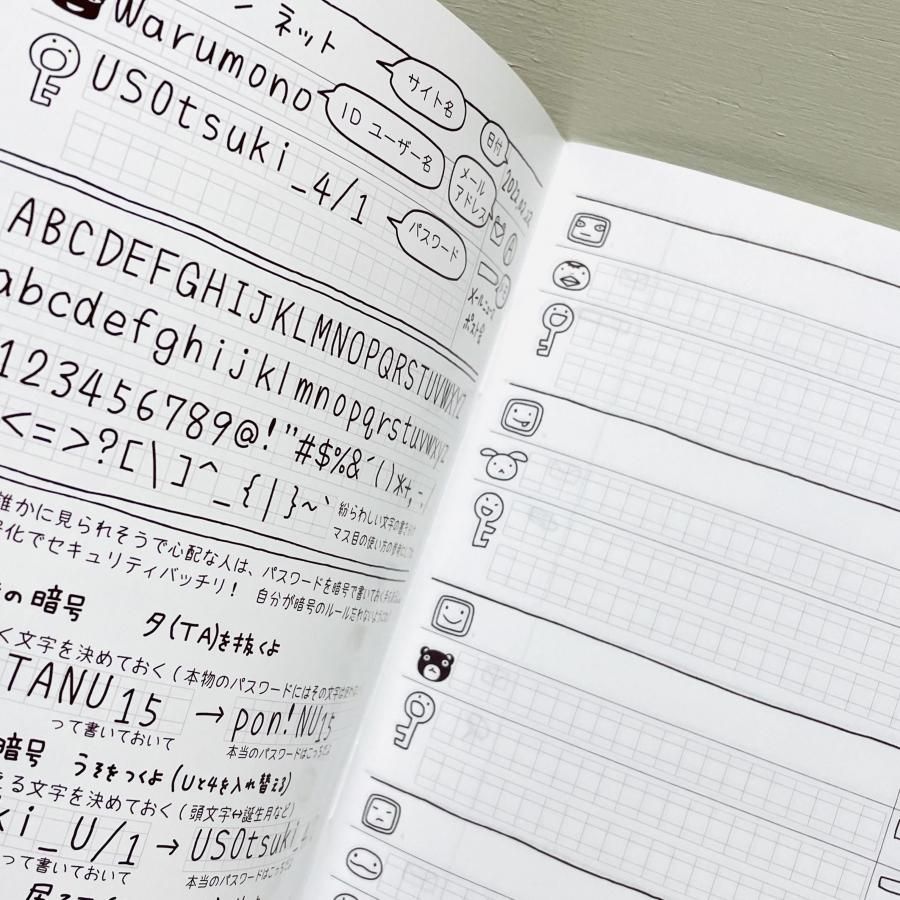 ン ネット
サイト名
Warumono
ID ユーザー名
日付
USOtsuki_4/1
メール
アドレス
パスワード
ABCDEFGHIJKLMNOPQRSTUVWXYZ
abcdefghijklmnopqrstuvwxyz
123456789@!"#$%&´()*+,-
<=>?[\]^_{|}~`
紛らわしい文字の書き
マス目の使い方の参考に
誰かに見られそうで心配な人は、パスワードを暗号で書いておく
化でセキュリティバッチリ! 自分が暗号のルール忘れないように
の暗号 タ(TA)を抜くよ
く文字を決めておく(本物のパスワードにはその文字は
TANU15 → pon!NU15
って書いておいて 本当のパスワードはこっち
暗号 うそをつくよ(Uと4を入れ替える)
える文字を決めておく(頭文字⇔誕生月など)
ki_U/1 → USOtsuki_
って書いておいて 本当のパスワードはこっち